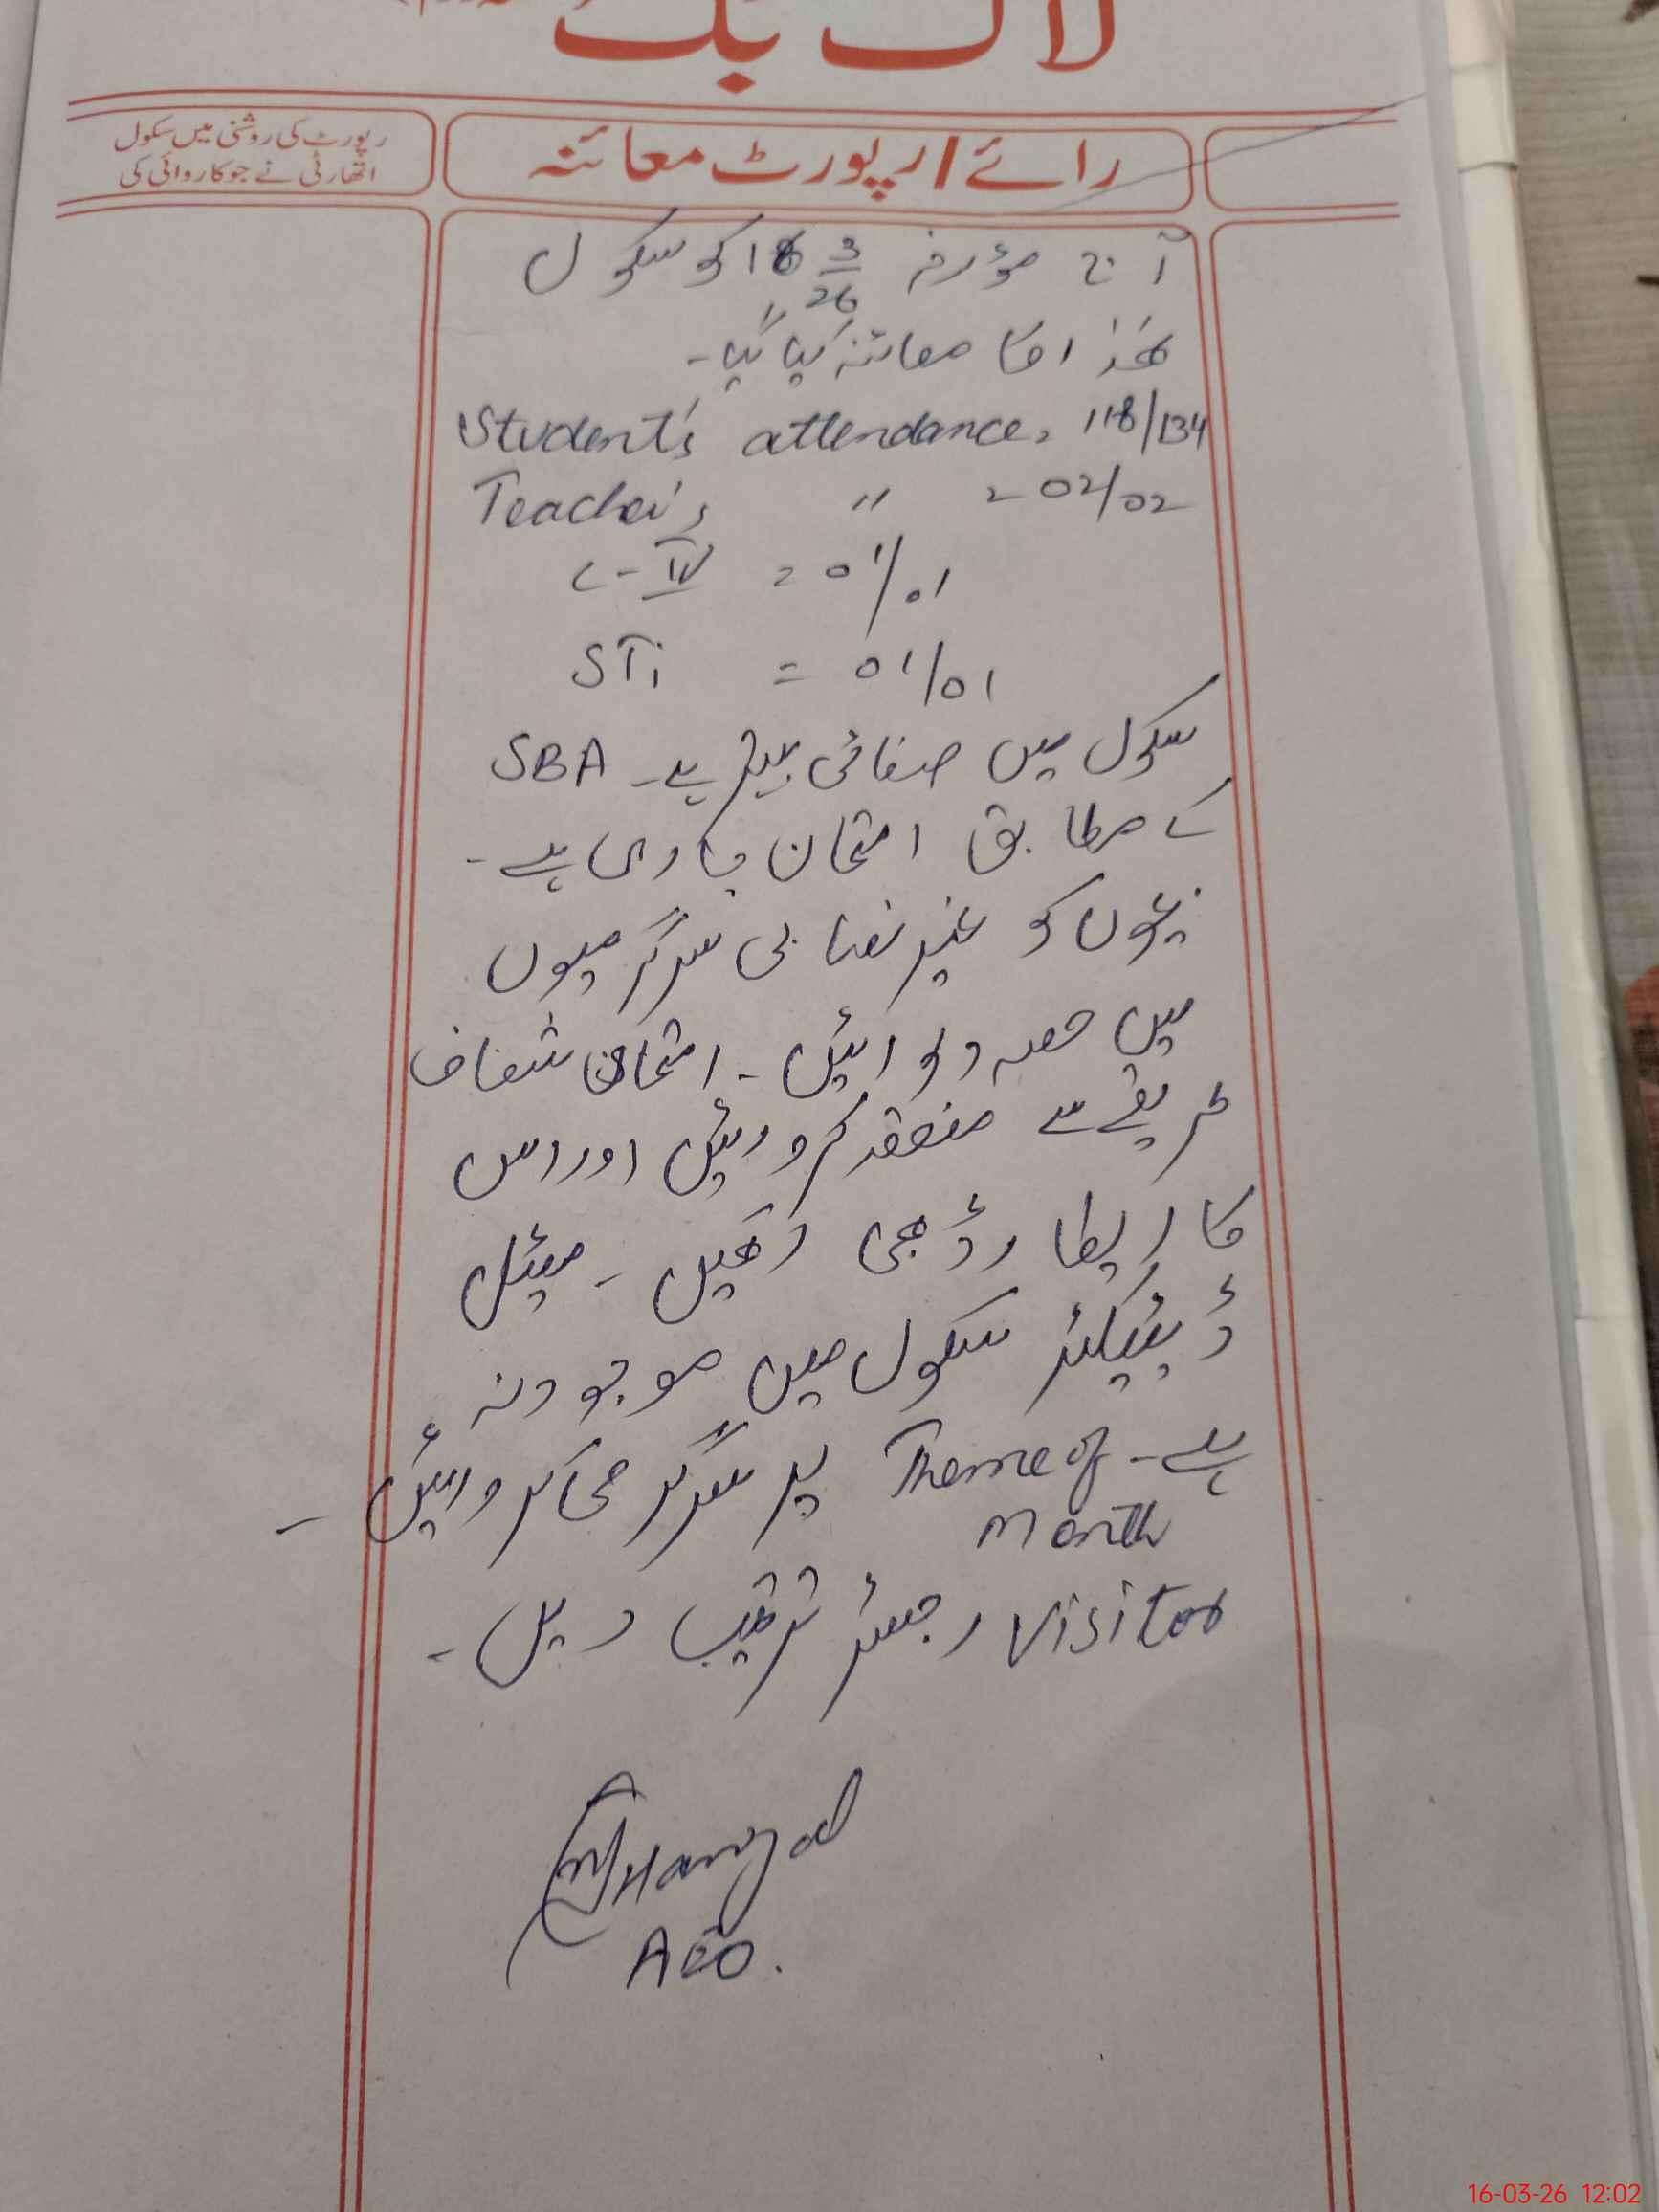 لاگ بک
رائے / رپورٹ معائنہ
رپورٹ کی روشنی میں سکول
اتھارٹی نے جو کاروائی کی
آج مؤرخہ 16 3/26 کو سکول
ھٰذا کا معائنہ کیا گیا۔
Student's attendance = 118/134
Teacher's " = 02/02
C-IV = 01/01
STi = 01/01
سکول میں صفائی بہتر ہے۔ SBA
کے مطابق امتحان جاری ہے۔
بچوں کو غیر نصابی سرگرمیوں
میں حصہ دلوائیں۔ امتحان شفاف
طریقے سے منعقد کروائیں اور اس
کا ریکارڈ بھی رکھیں۔
سکول میں موجود نہ
ہے۔ Theme of Month پر سرگرمی کروائیں۔
Visitor رجسٹر ترتیب دیں۔
AEO.
16-03-26 12:02